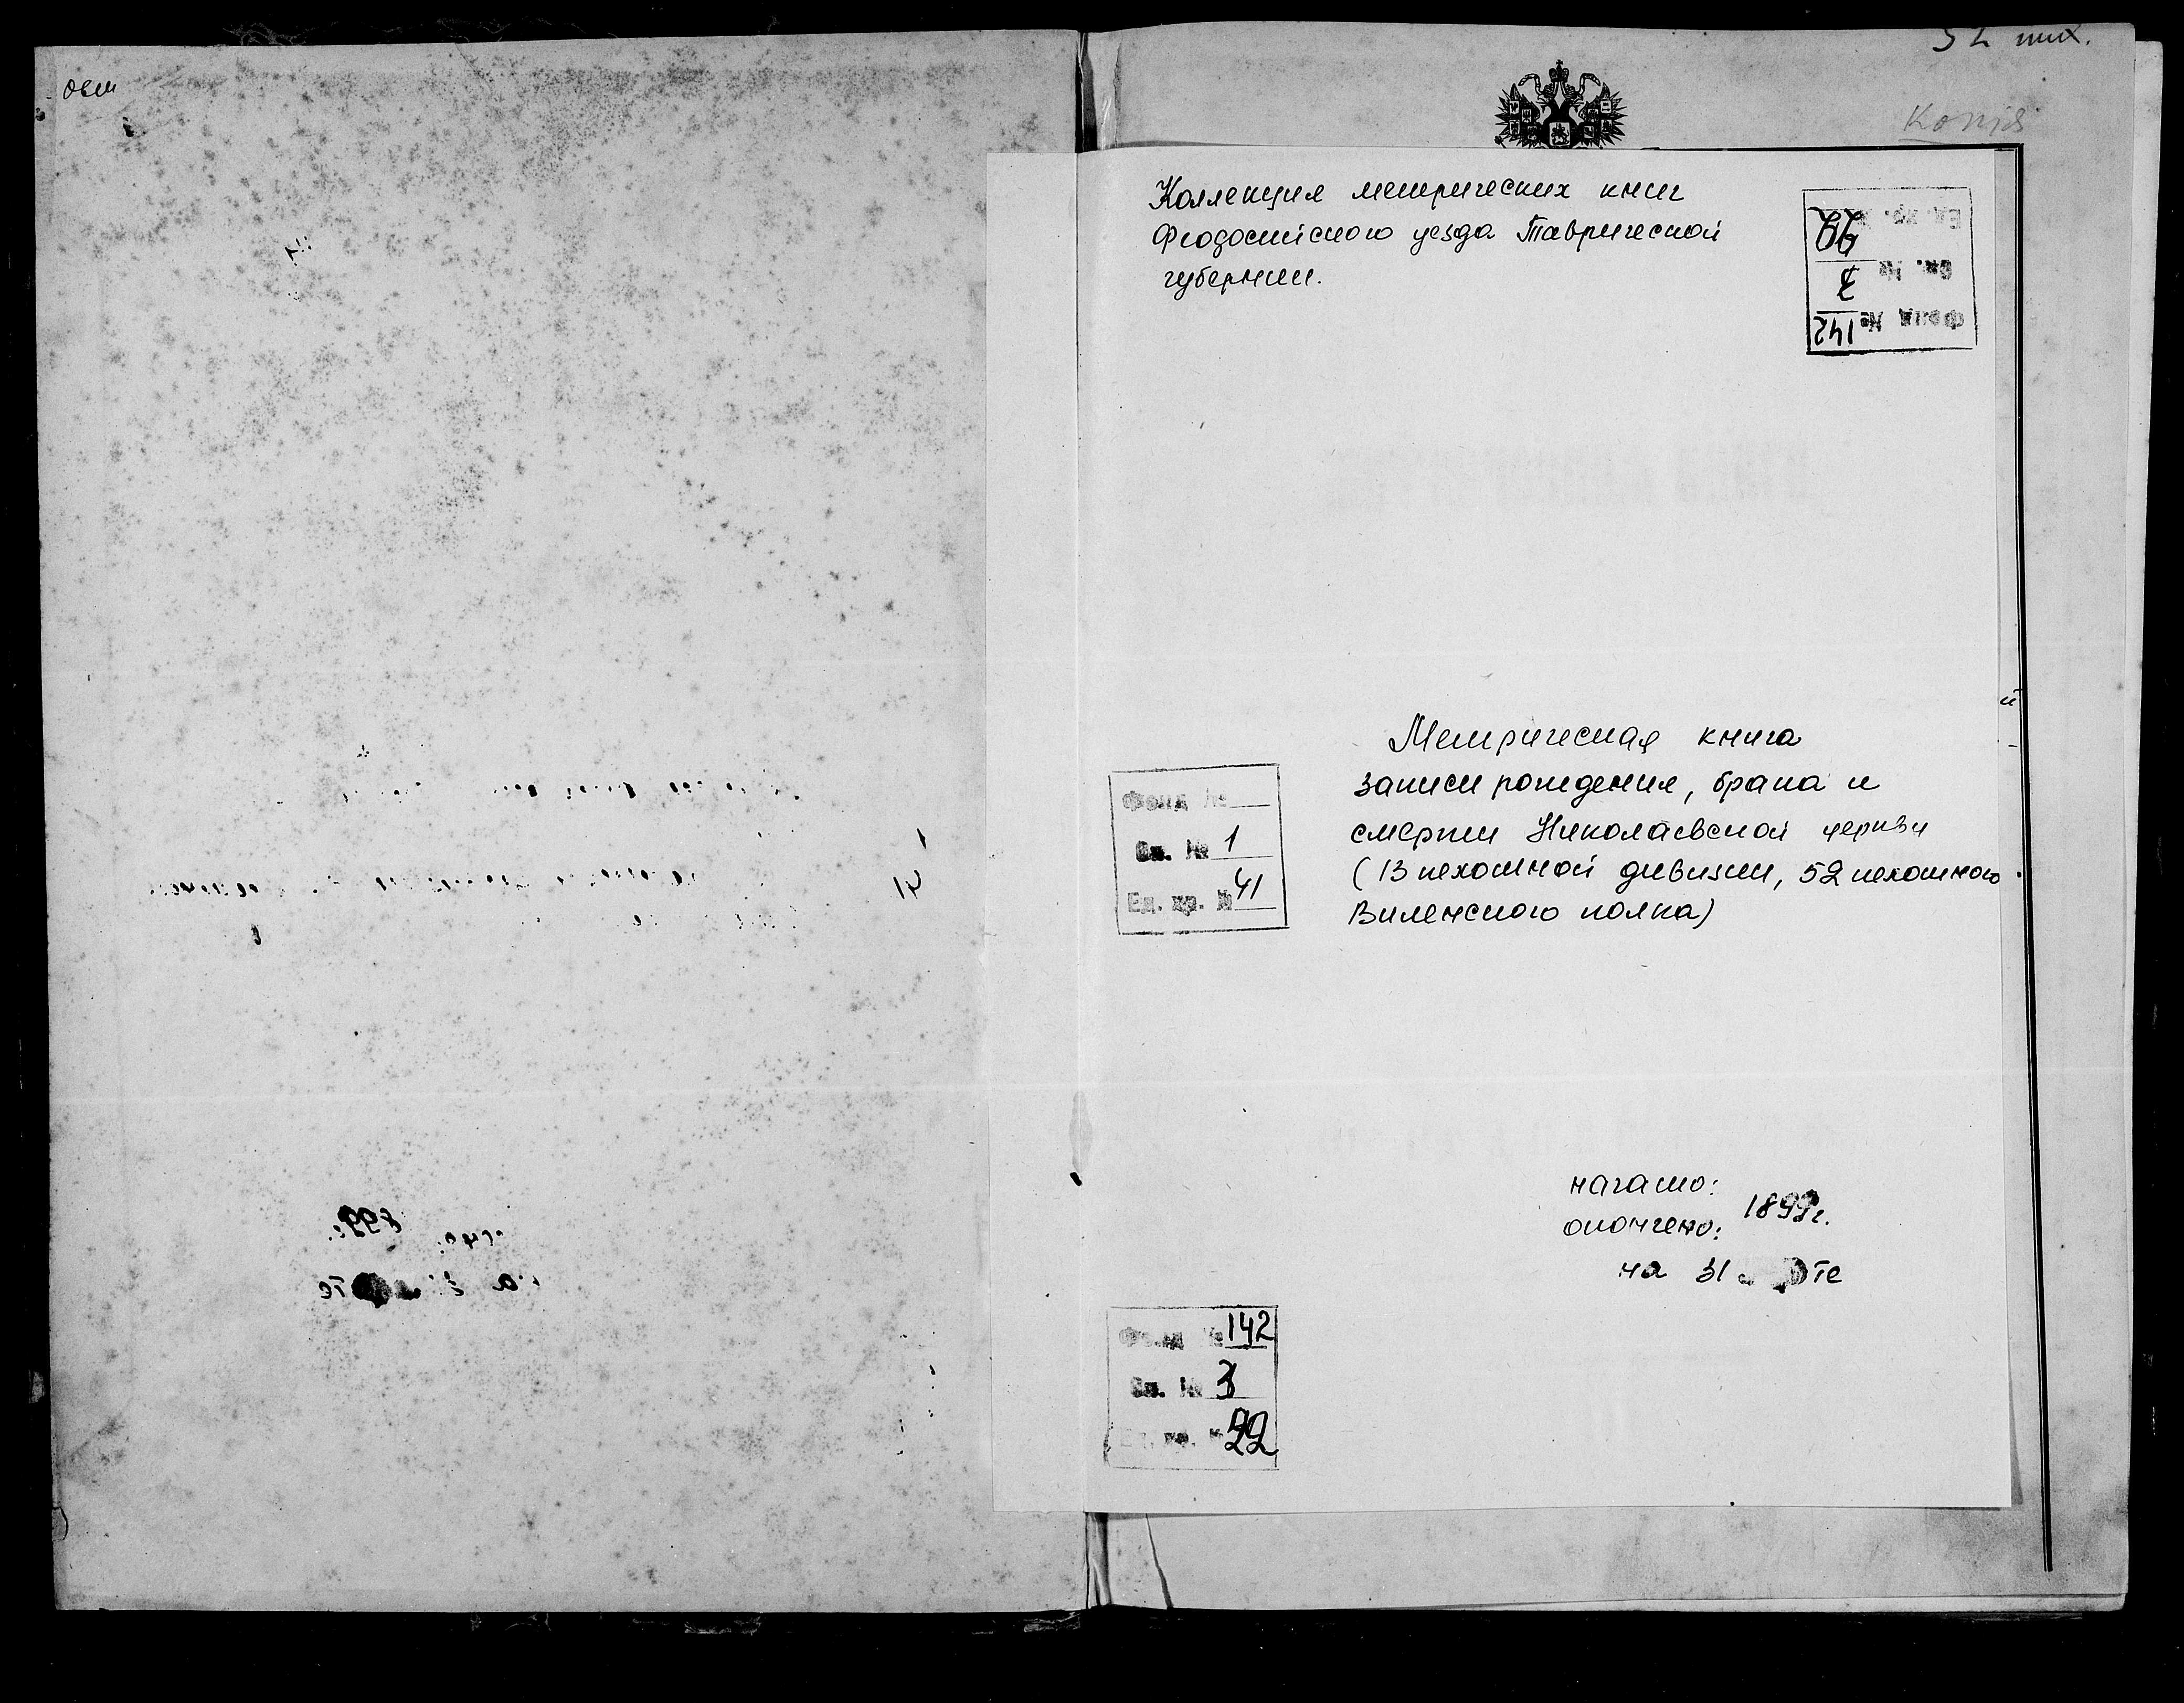 52 пех.
Копія
Коллекция метрических книг
Феодосийского уезда Таврической
губернии.
Ед. хр. № 22
Оп. № 3
Фонд № 142
Метрическая книга
записи рождения, брака и
смерти Николаевской церкви
(13 пехотной дивизии, 52 пехотного
Виленского полка)
Фонд №
Оп. № 1
Ед. хр. № 41
начато:
окончено: 1899г.
на 31
Фонд № 142
Оп. № 3
Ед. хр. № 22